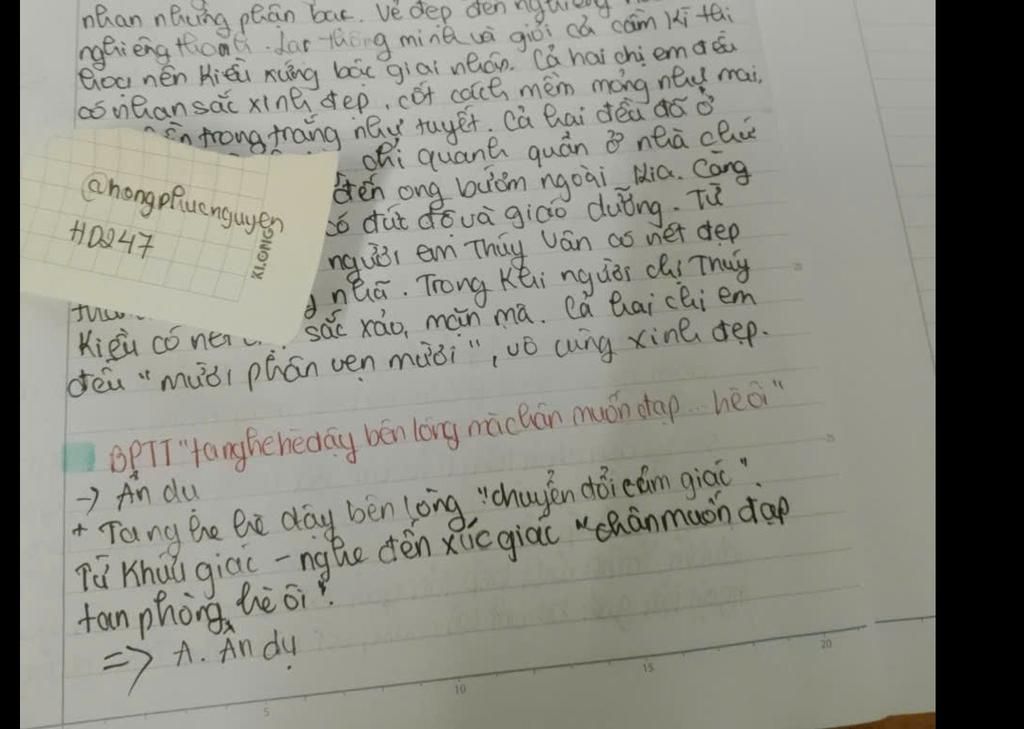 nhan những phận bạc. Vẻ đẹp đến người
nghiêng thành. Lại thông minh và giỏi cả cầm kì thi
họa nên Kiều xứng bậc giai nhân. Cả hai chị em đều
có nhan sắc xinh đẹp, cốt cách mềm mỏng như mai,
trong trắng như tuyết. Cả hai đều đã ở
chỉ quanh quẩn ở nhà chứ
đến ong bướm ngoài kia. Càng
đức độ và giáo dưỡng. Từ
@hongphucnguyen
HD247
KLONG
người em Thúy Vân có nét đẹp
nhã. Trong khi người chị Thúy
Kiều có nét sắc xảo, mặn mà. Cả hai chị em
đều "mười phân vẹn mười", vô cùng xinh đẹp.
BPTT "ta nghe hè dậy bên lòng mà chân muốn đạp... hè ôi"
-> Ẩn dụ
+ Ta nghe hè dậy bên lòng "chuyển đổi cảm giác".
Từ khứu giác - nghe đến xúc giác "chân muốn đạp
tan phòng hè ôi".
=> A. Ẩn dụ
5 10 15 20
25